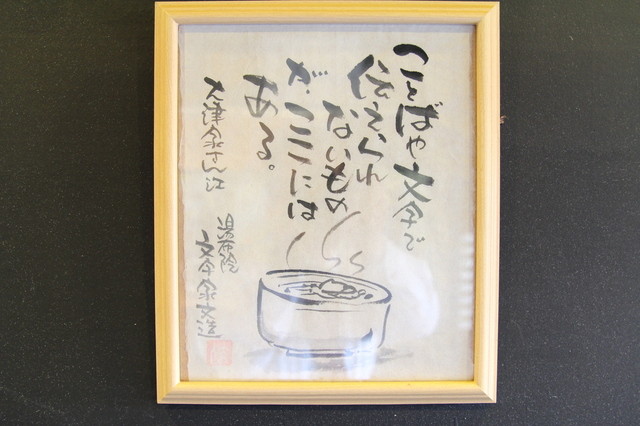 ことばや文字で
伝えられ
ないもの
が、ここには
ある。
大津家さん江
湯布院
文字家文造